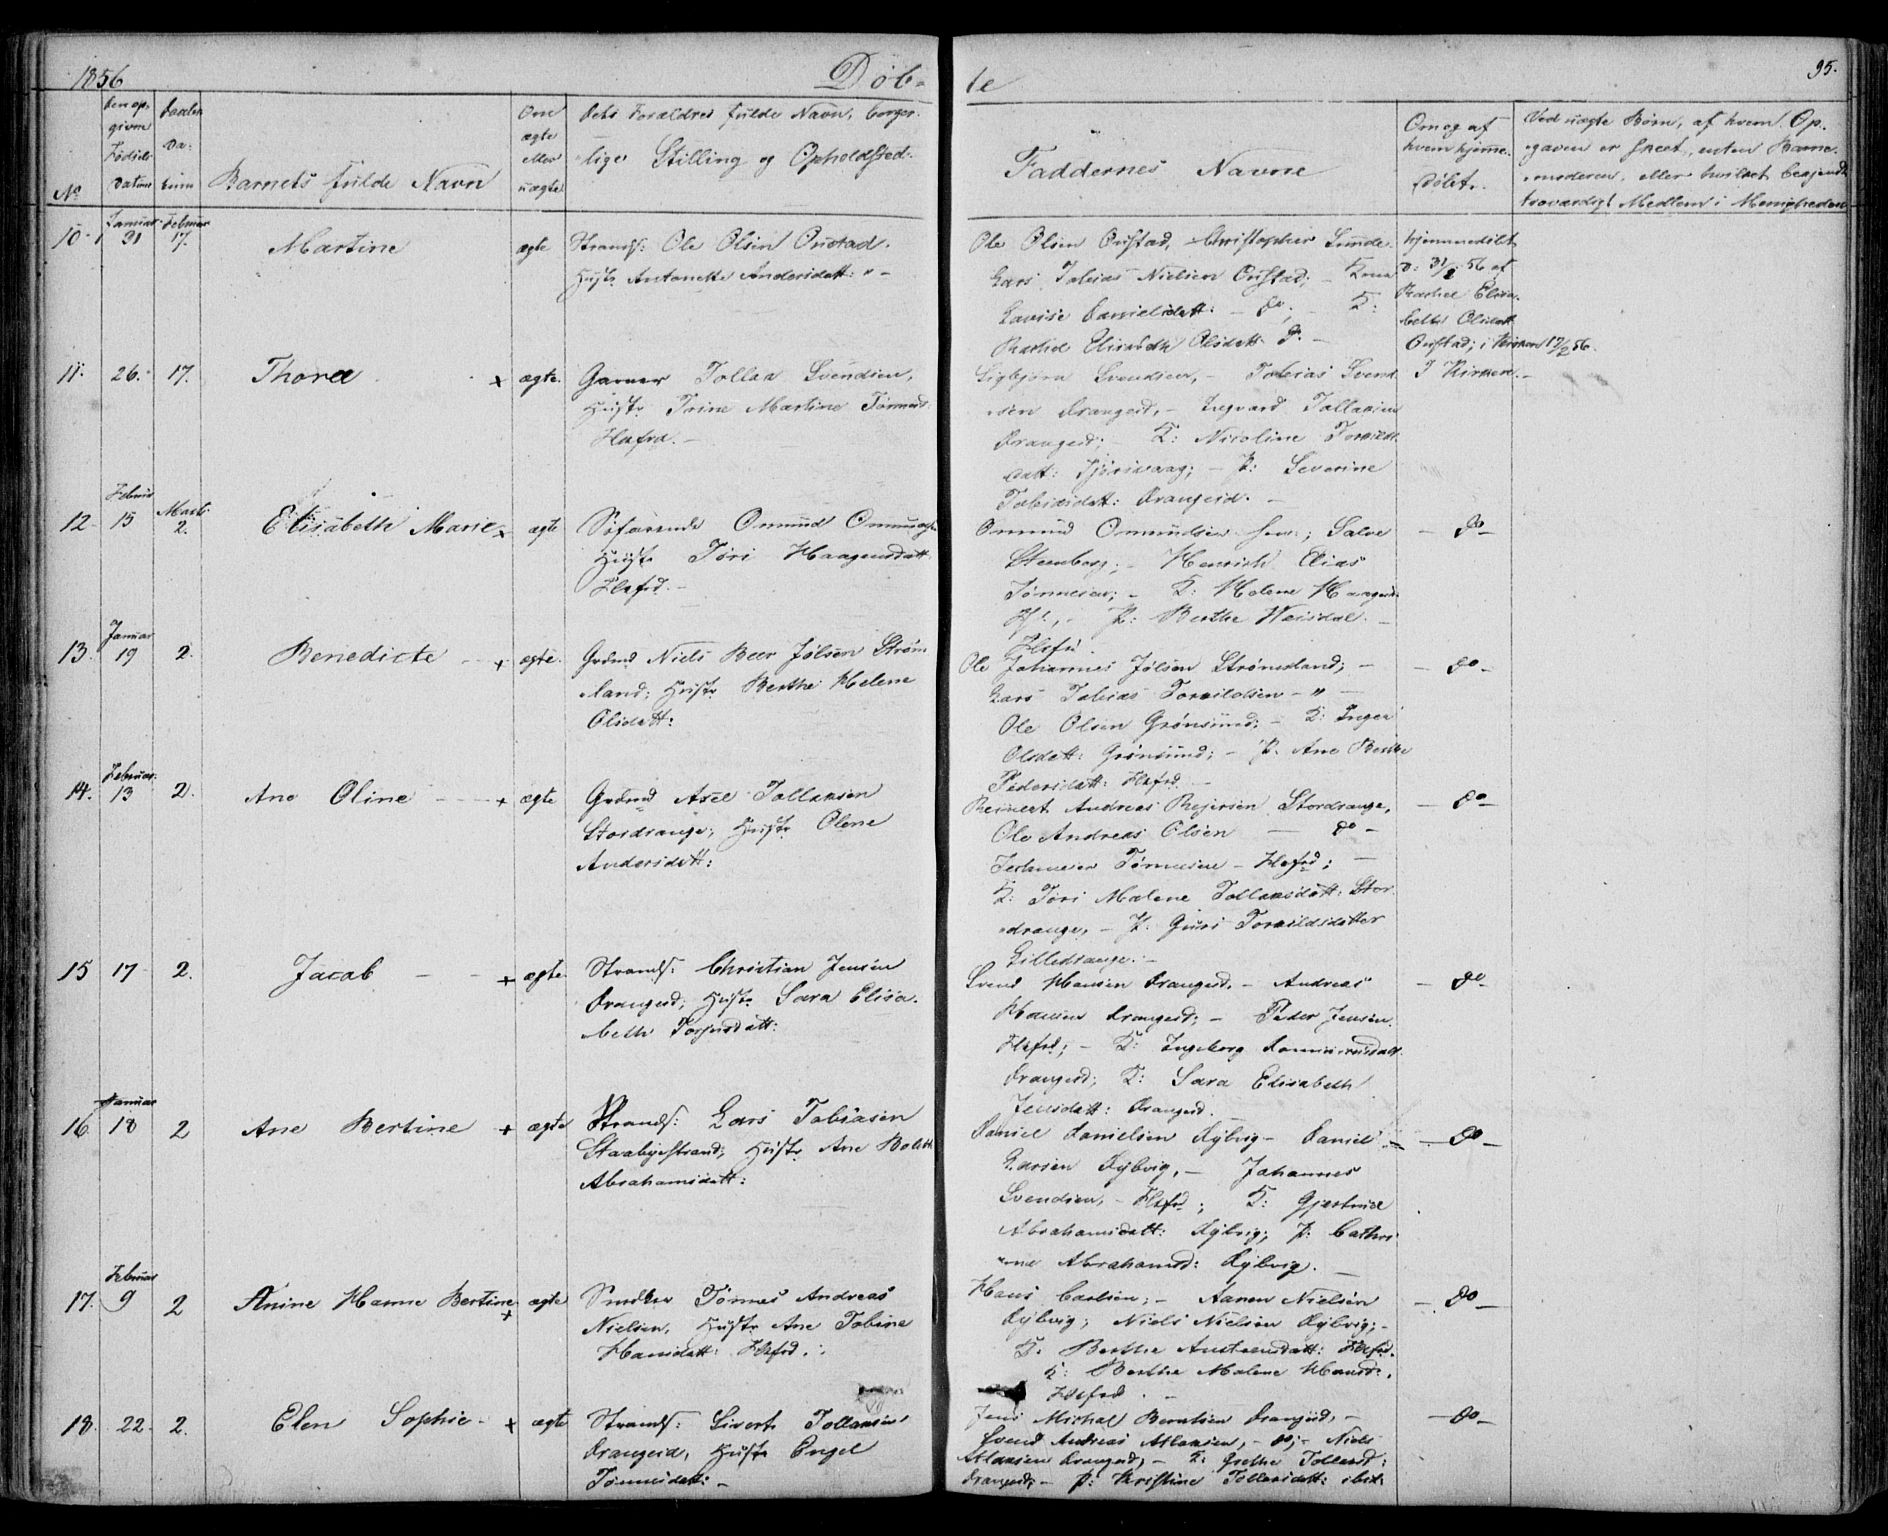 1856 Døb- te 95.
No
Den op-
givne
Fødsels
Datum
Daabs
Da-
tum
Barnets fulde Navn
Om
ægte
eller
uægte
Dets Forældres fulde Navn, borger-
lige Stilling og Opholdsted.
Faddernes Navne
Om og af
hvem hjemme-
døbt.
Ved uægte Børn, af hvem Op-
gaven er skeet, enten Barne-
moderen, eller hvilket
troværdigt Medlem i Menigheden
10 Januar 31 Februar 17. Martine ægte Strands: Ole Olsen Oustad.
Hustr Antonette Andersdatt: " -
Ole Olsen Oustad, Christopher Lunde.
Lars Tobias Nielsen Oustad; -
Lovise Danielsdatt: - do; -
Rachel Elisabeth Olsdatt do -
hjemmedøbt
D: 31/1 56 af
Rachel Elisa-
beth Olsdatt
Oustad; i Kirken 17/2 56.
11. 26. 17. Thora x ægte. Garver Tollak Svendsen,
Hustr Trine Martine Tønnes
Flefrd. -
Sigbjørn Svendsen, - Tobias Svend-
sen Drangeid, - Ingvard Tollaksen
Drangeid; - K: Nicoline Torkilds-
datt: - P: Severine
Tobiasdatt: Drangeid. -
I Kirken. -
12 Februar 15 Marts 2. Elisabeth Marie x ægte Søfarende Omund Omundsen
Hustr Tøri Haagensdatt
Flefrd. -
Omund Omundsen sen:; Salve
Steenberg; - Henrich Elias
Tønnesen; - K: Helene Haagens-
- P: Berthe -
Flefrd.
- do -
13. Januar 19 2. Benedicte x ægte. Grdmd Niels Beer Jølsen Strøms-
land; Hustr Berthe Helene
Olsdatt:
Ole Johannes Jølsen Strømsland; -
Lars Tobias Torkildsen - " -
Ole Olsen Grønsund; - K: Inger
Olsdatt: Grønsund; - P. Ane Berthe
Pedersdatt: Flefrd. -
- do -
14. Februar 13 2. Ane Oline x ægte Grdmd Axel Tollaksen
Stordrange; Hustr Olene
Andersdatt:
Reinert Andreas Rejersen Stordrange,
Ole Andreas Olsen - do -
Tønnesen - Flefrd; -
K: Tøri Malene Tollaksdatt: Stor-
drange, - P. Guri Torkildsdatter
Lilledrange. -
- do -
15 17 2. Jacob - - x ægte Strands: Christian Jensen
Drangeid; Hustr Sara Elisa-
beth Torjusdatt:
Svend Hansen Drangeid. - Andreas
Hansen Drangeid; - Peder Jensen
Flefrd; - K: Ingeborg
Drangeid; K: Sara Elisabeth
Jensdatt: Drangeid.
- do -
16 Januar 18 2 Ane Bertine x ægte Strands: Lars Tobiasen
Hustr Ane Bolette
Abrahamsdatt:
Daniel Danielsen Rybvig - Daniel
Larsen Rybvig, - Johannes
Svendsen, - Flefrd; K: Gjertrud
Abrahamsdatt: Rybvig; P: Cathri-
ne Abrahamsd: Rybvig. -
- do -
17. Februar 9 2 Anine Hanne Bertine x ægte Snedker Tønnes Andreas
Nielsen, Hustr Ane Tobine
Hansdatt: Flefrd.
Hans Carlsen; - Aanen Nielsen
Rybvig; Niels Nielsen Rybvig; -
K: Berthe Austensdatt: Flefrd.
K: Berthe Malene Hansd:
Flefrd. -
- do -
18. 22. 2. Elen Sophie - x ægte Strands: Sivert Tollaksen
Drangeid, Hustr Engel
Tønnesdatt: -
Jens Michal Berntsen Drangeid, -
Svend Andreas Atlaksen, - do; - Niels
Atlaksen Drangeid; - K: Grethe Tollaksd:
Drangeid; - P: Kristine Tollaksdatt: ibid:
- do -